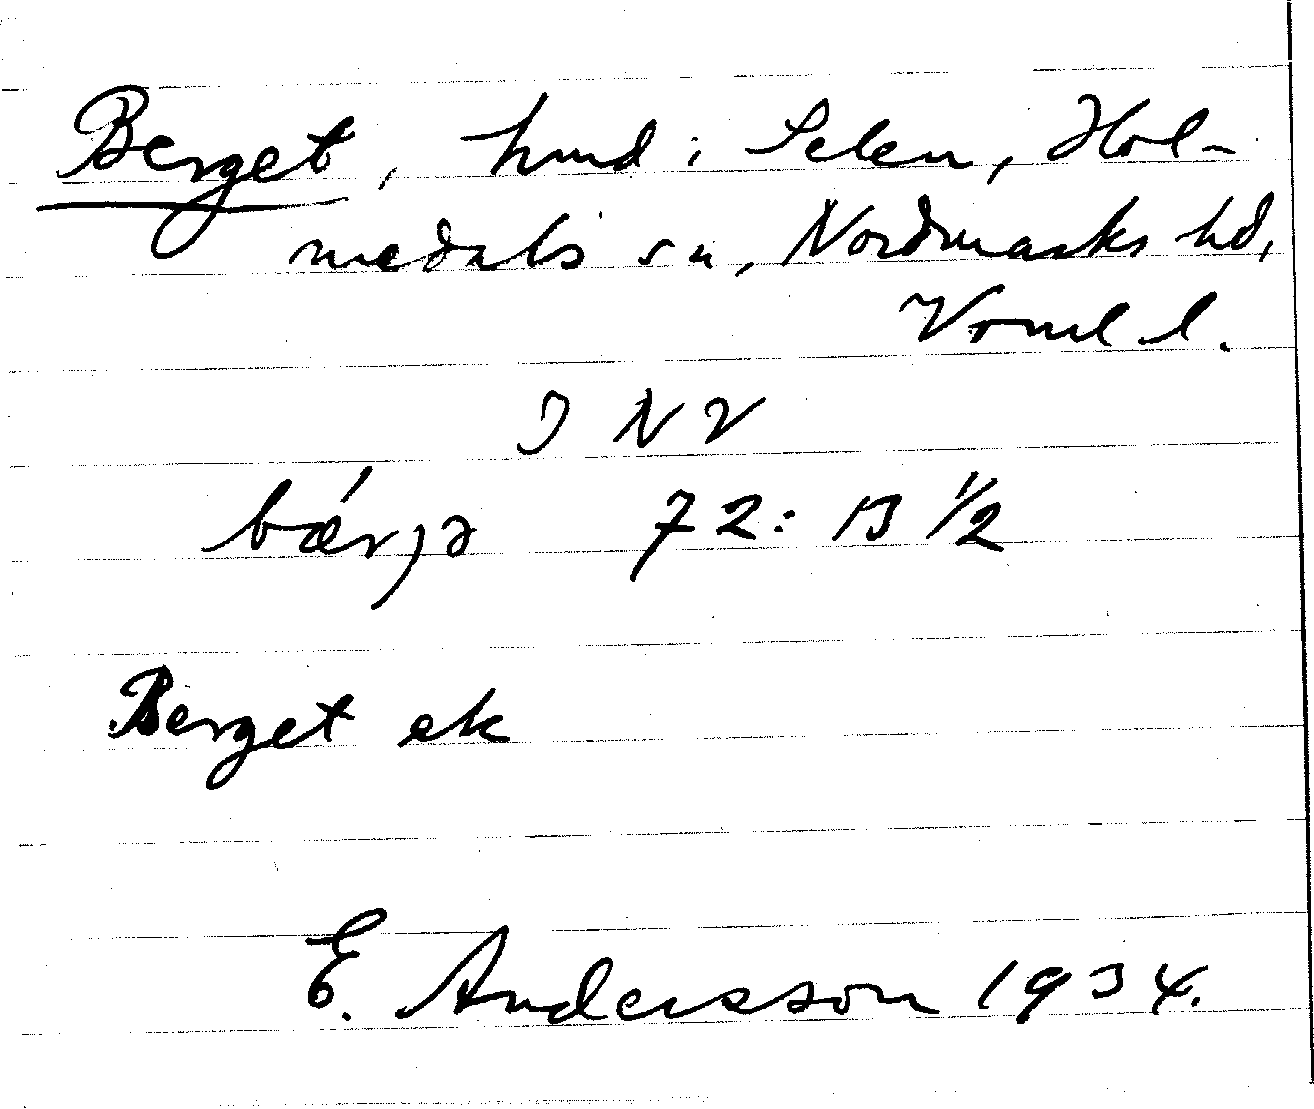 Berget, hmd i Selen, Hol-
medals sn, Nordmarks hd,
Vrml l.
I NV
bǽrjə 72: 13 1/2
Berget ek
E. Andersson 1934.